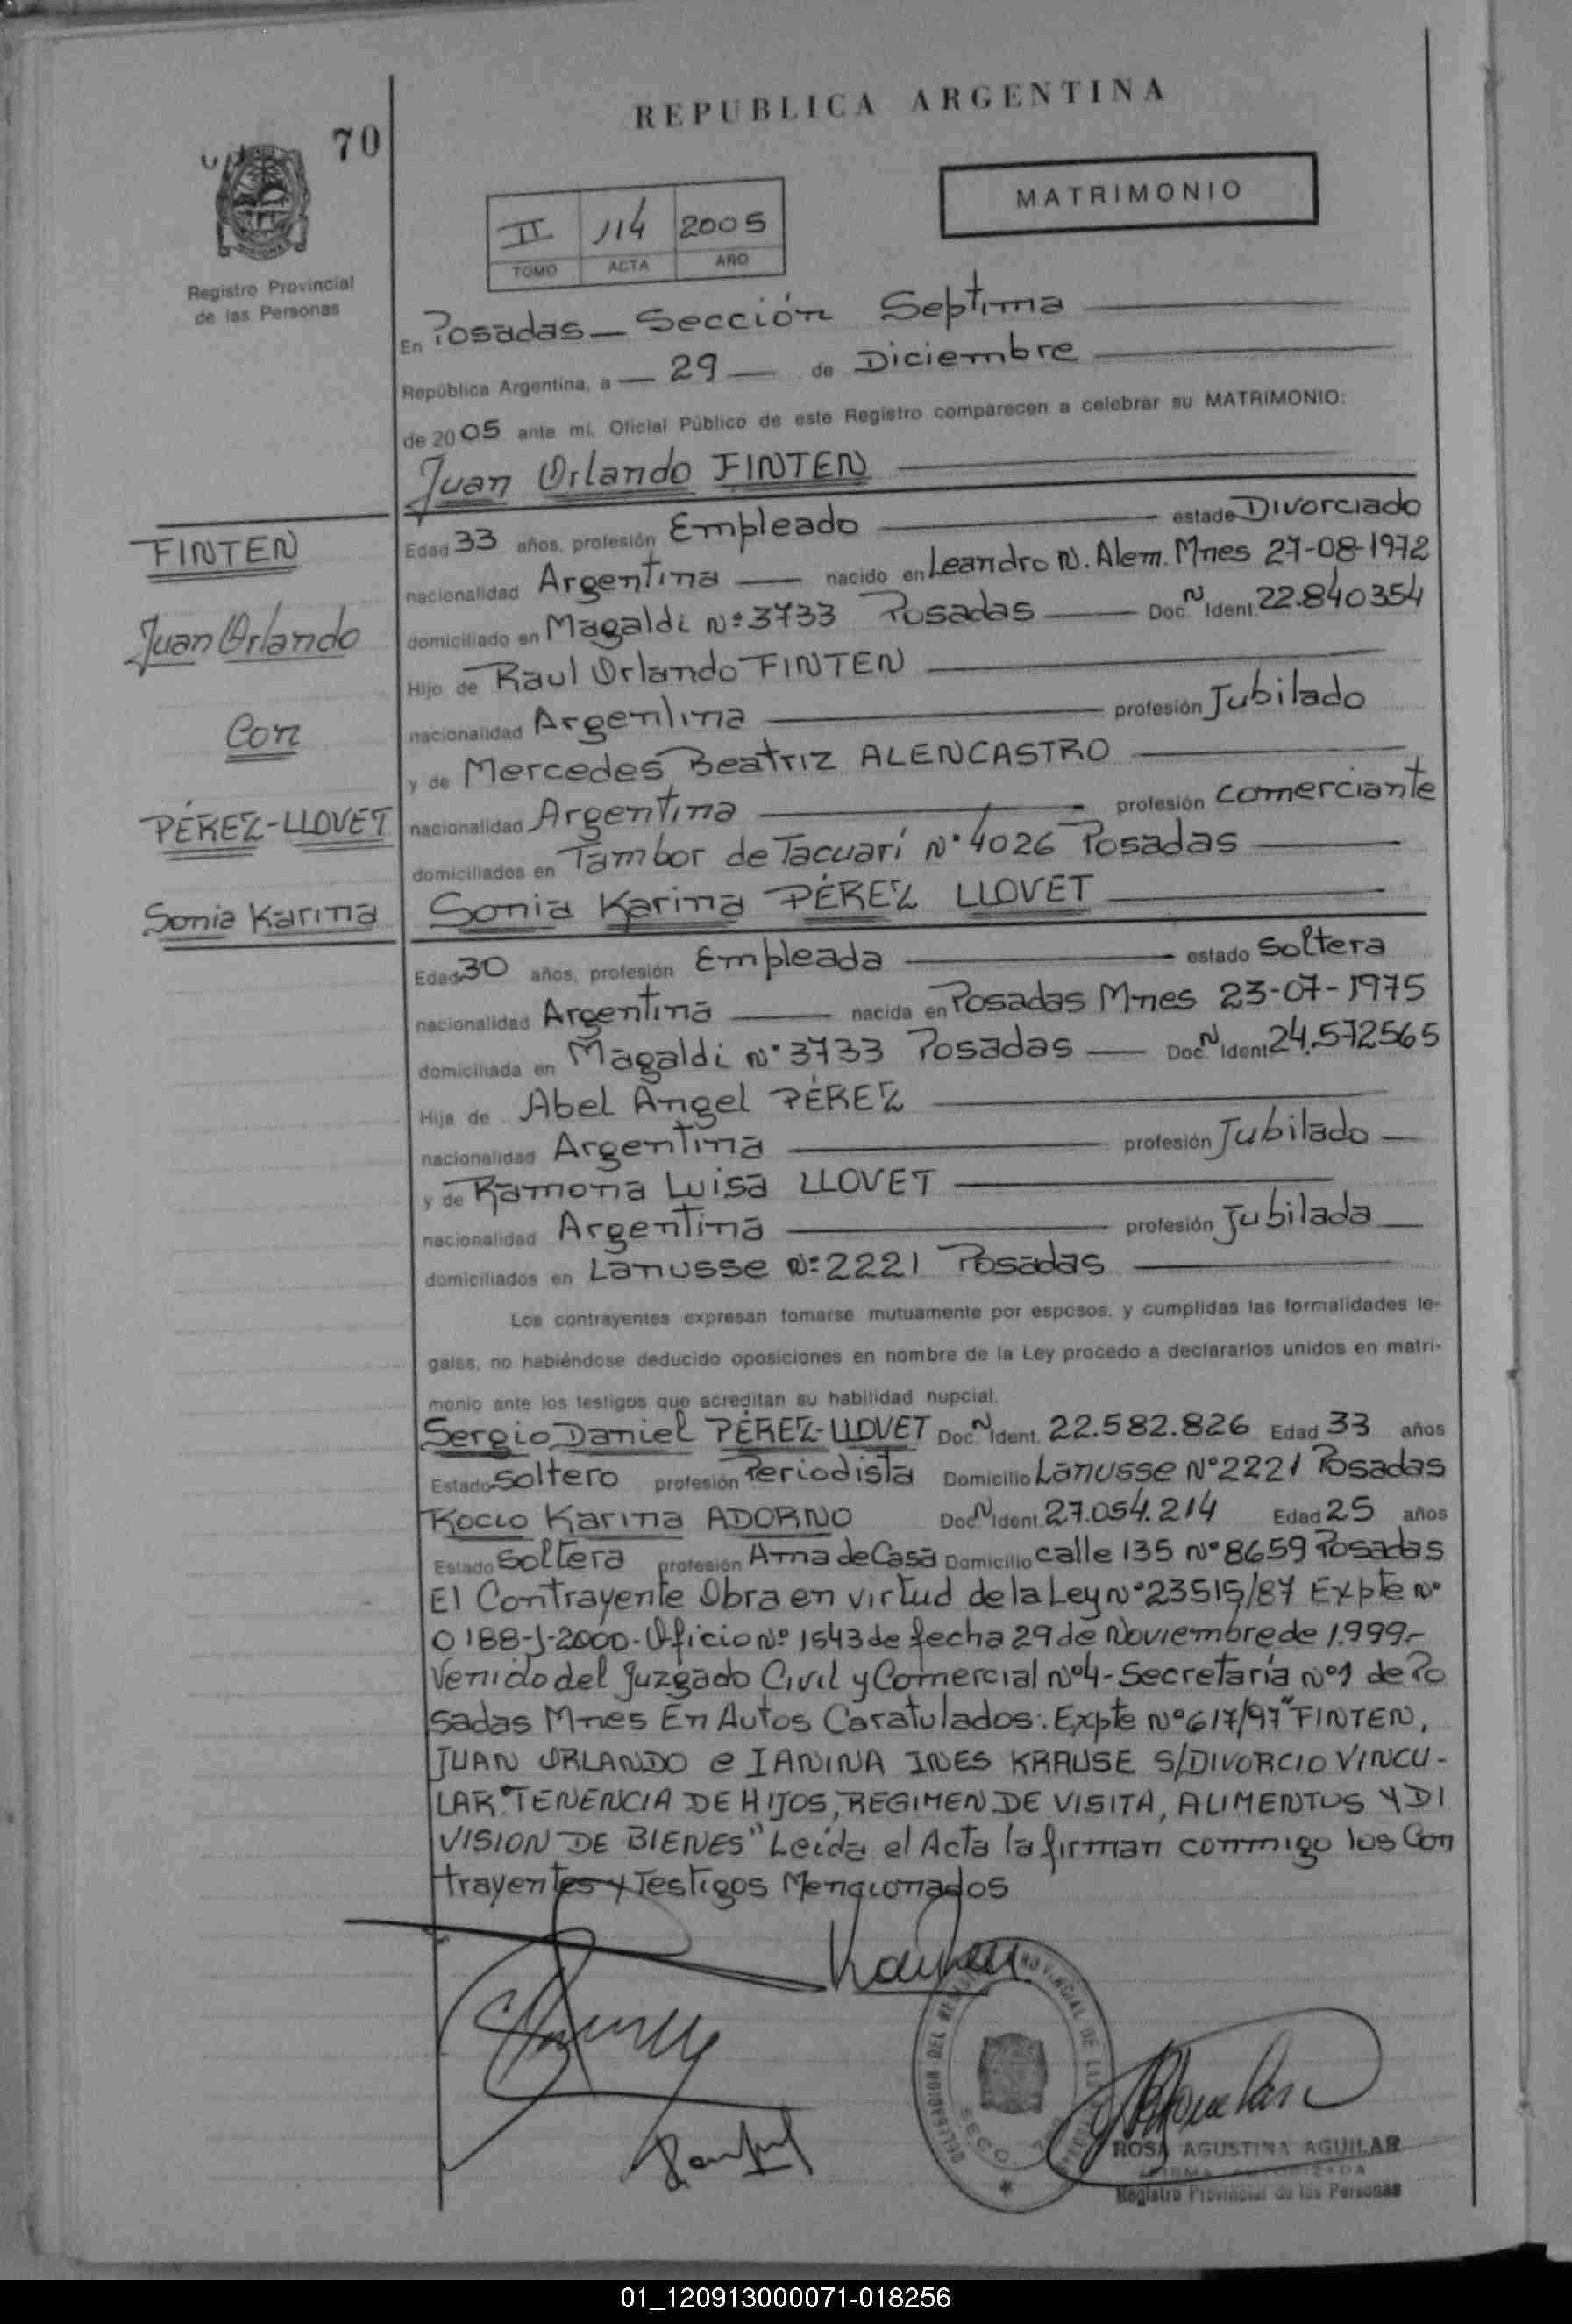 REPUBLICA ARGENTINA
70
MATRIMONIO
II 114 2005
TOMO ACTA AÑO
Registro Provincial
de las Personas
En Posadas - Sección Septima
República Argentina, a - 29 - de Diciembre
de 2005 ante mí, Oficial Público de este Registro comparecen a celebrar su MATRIMONIO:
Juan Orlando FINTEN
Edad 33 años, profesión Empleado estado Divorciado
nacionalidad Argentina nacido en Leandro N. Alem. Mnes 27-08-1972
domiciliado en Magaldi Nº 3733 Posadas Doc. N Ident. 22.840354
Hijo de Raul Orlando FINTEN
nacionalidad Argentina profesión Jubilado
y de Mercedes Beatriz ALENCASTRO
nacionalidad Argentina profesión Comerciante
domiciliados en Tambor de Tacuarí Nº 4026 Posadas
FINTEN
Juan Orlando
Con
PÉREZ-LLOVET
Sonia Karina
Sonia Karina PÉREZ LLOVET
Edad 30 años, profesión Empleada estado Soltera
nacionalidad Argentina nacida en Posadas Mnes 23-07-1975
domiciliada en Magaldi Nº 3733 Posadas Doc. N Ident 24.572565
Hija de Abel Angel PÉREZ
nacionalidad Argentina profesión Jubilado
y de Ramona Luisa LLOVET
nacionalidad Argentina profesión Jubilada
domiciliados en Lanusse Nº 2221 Posadas
Los contrayentes expresan tomarse mutuamente por esposos, y cumplidas las formalidades le-
gales, no habiéndose deducido oposiciones en nombre de la Ley procedo a declararlos unidos en matri-
monio ante los testigos que acreditan su habilidad nupcial.
Sergio Daniel PÉREZ-LLOVET Doc. N Ident. 22.582.826 Edad 33 años
Estado Soltero profesión Periodista Domicilio Lanusse Nº 2221 Posadas
Rocio Karina ADORNO Doc. N Ident. 27.054.214 Edad 25 años
Estado Soltera profesión Ama de Casa Domicilio calle 135 Nº 8659 Posadas
El Contrayente Obra en virtud de la Ley Nº 23515/87 Expte Nº
0188-J-2000-Oficio Nº 1543 de fecha 29 de Noviembre de 1.999.-
Venido del Juzgado Civil y Comercial Nº 4 - Secretaría Nº 1 de Po
sadas Mnes En Autos Caratulados: Expte Nº 617/97 "FINTEN,
JUAN ORLANDO e IANINA INES KRAUSE S/DIVORCIO VINCU-
LAR, TENENCIA DE HIJOS, REGIMEN DE VISITA, ALIMENTOS Y DI
VISION DE BIENES" Leida el Acta la firman conmigo los Con
trayentes y Testigos Mencionados
DELEGACION DEL REGISTRO PROVINCIAL DE LAS PERSONAS
ROSA AGUSTINA AGUILAR
FIRMA AUTORIZADA
Registro Provincial de las Personas
01_120913000071-018256